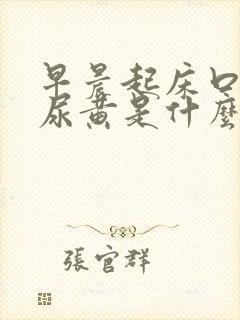 早晨起床口
尿黄是什麼
張官群